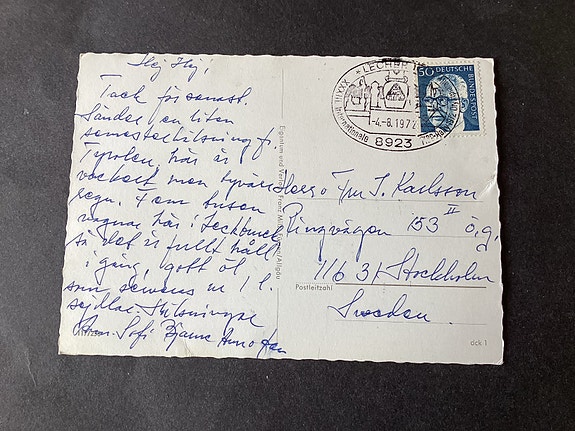 Hej Hej!
Tack för senast.
Sänder en liten
semesterhälsning fr.
Tyrolen, här är
vackert men tyvärr
regn. Fem tusen
vagnar här i Lechbruck
så det är fullt håll
i gång, gott öl
som serveras ur 1 l.
sejdlar. Hälsningar
Sofi Bjarne Arno
Eigentum und Verlag Franz Mi /Allgäu
LECHBR
INTERNATIONALE
XXXIII
-4.-8.1972
8923
50 DEUTSCHE
BUNDESPOST
Herr o Fru I. Karlsson
Ringvägen 153 II ö.g.
116 31 Stockholm
Postleitzahl
Sweden.
dck 1